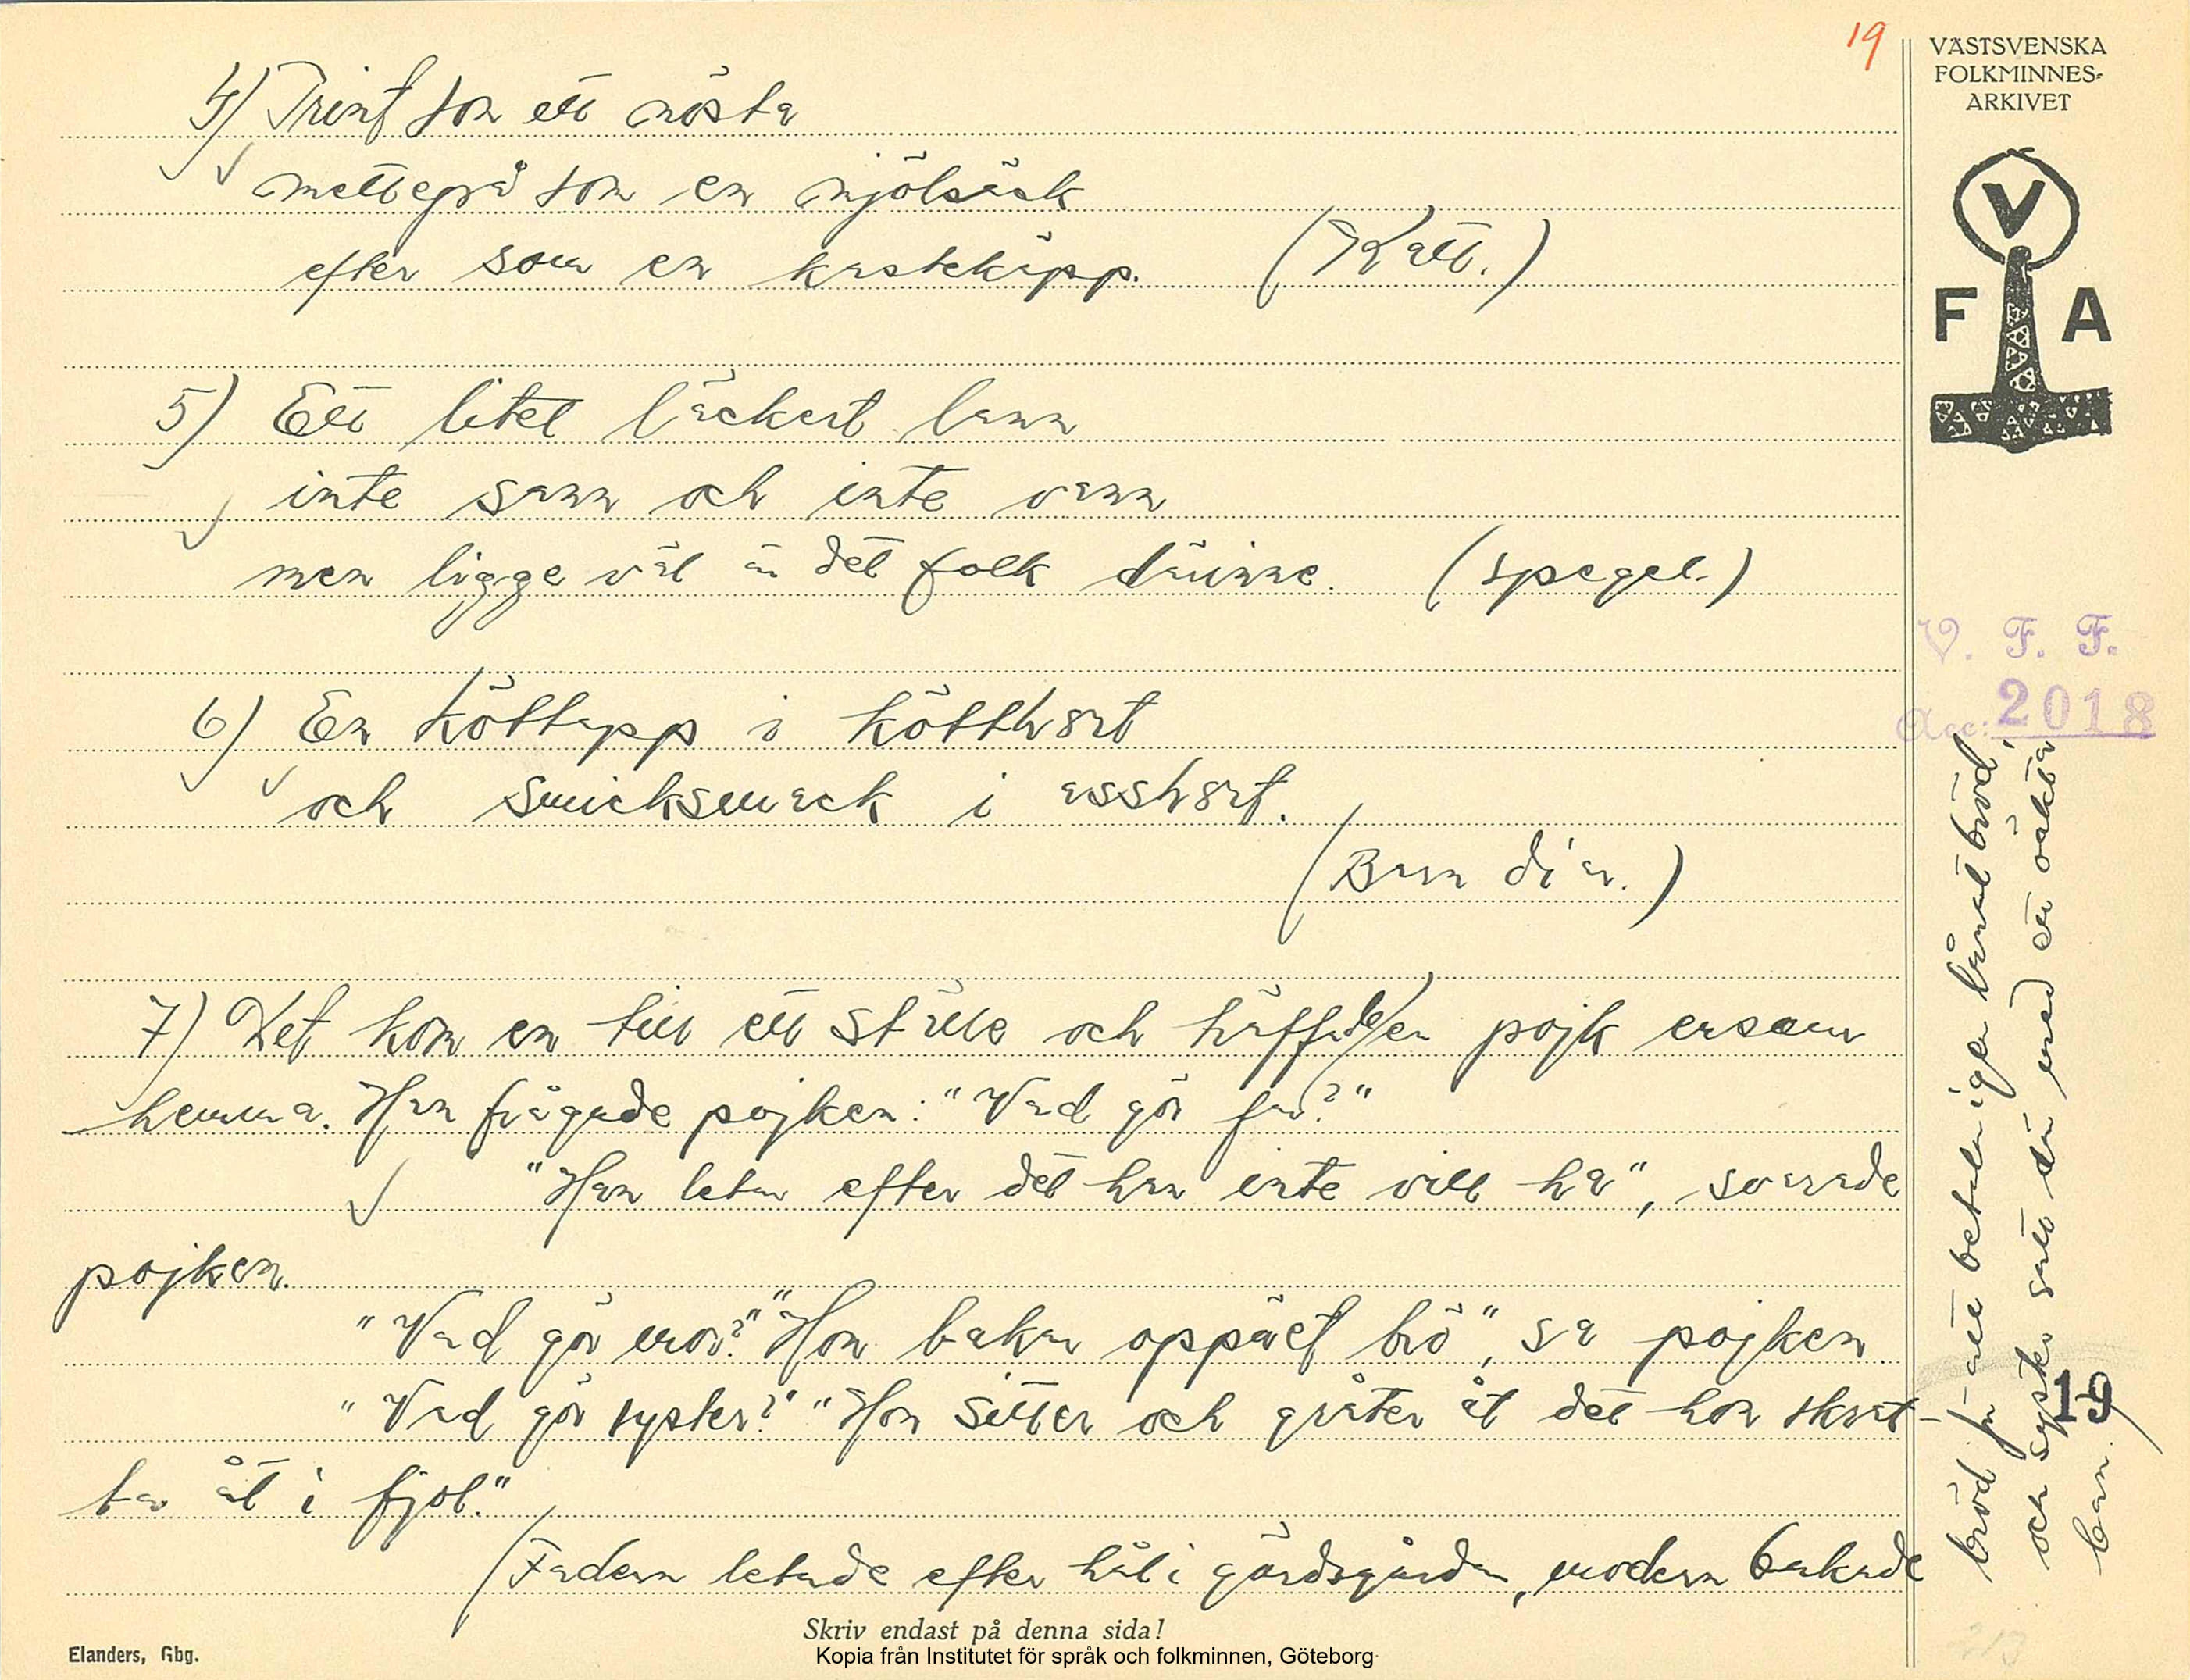 19
VÄSTSVENSKA
FOLKMINNES-
ARKIVET
V
F A
4) Trint som ett nösta
mellegrå som en mjölsäck
efter som en kastekäpp. (Katt.)
5) Ett litet läckert lann
inte sann och inte vann
men ligge väl är det folk därinne. (spegel.)
V. F. F.
Acc: 2018
6) En köttapp i kötthort
och smicksmack i asshort.
(Barn diar.)
7) Det kom en till ett ställe och träffade en pojk ensam
hemma. Han frågade pojken: "Vad gör far?"
"Han letar efter det han inte vill ha", svarade
pojken.
"Vad gör mor?" "Hon bakar oppäet brö", sa pojken.
"Vad gör syster?" "Hon sitter och gråter åt det hon skrat-
ta åt i fjol."
(Fadern letade efter hål i gärdsgården, modern bakade
bröd för att betala igen lånat bröd,
och syster satt där med ett oäkta
barn.)
19
213
Skriv endast på denna sida!
Elanders, Gbg.
Kopia från Institutet för språk och folkminnen, Göteborg